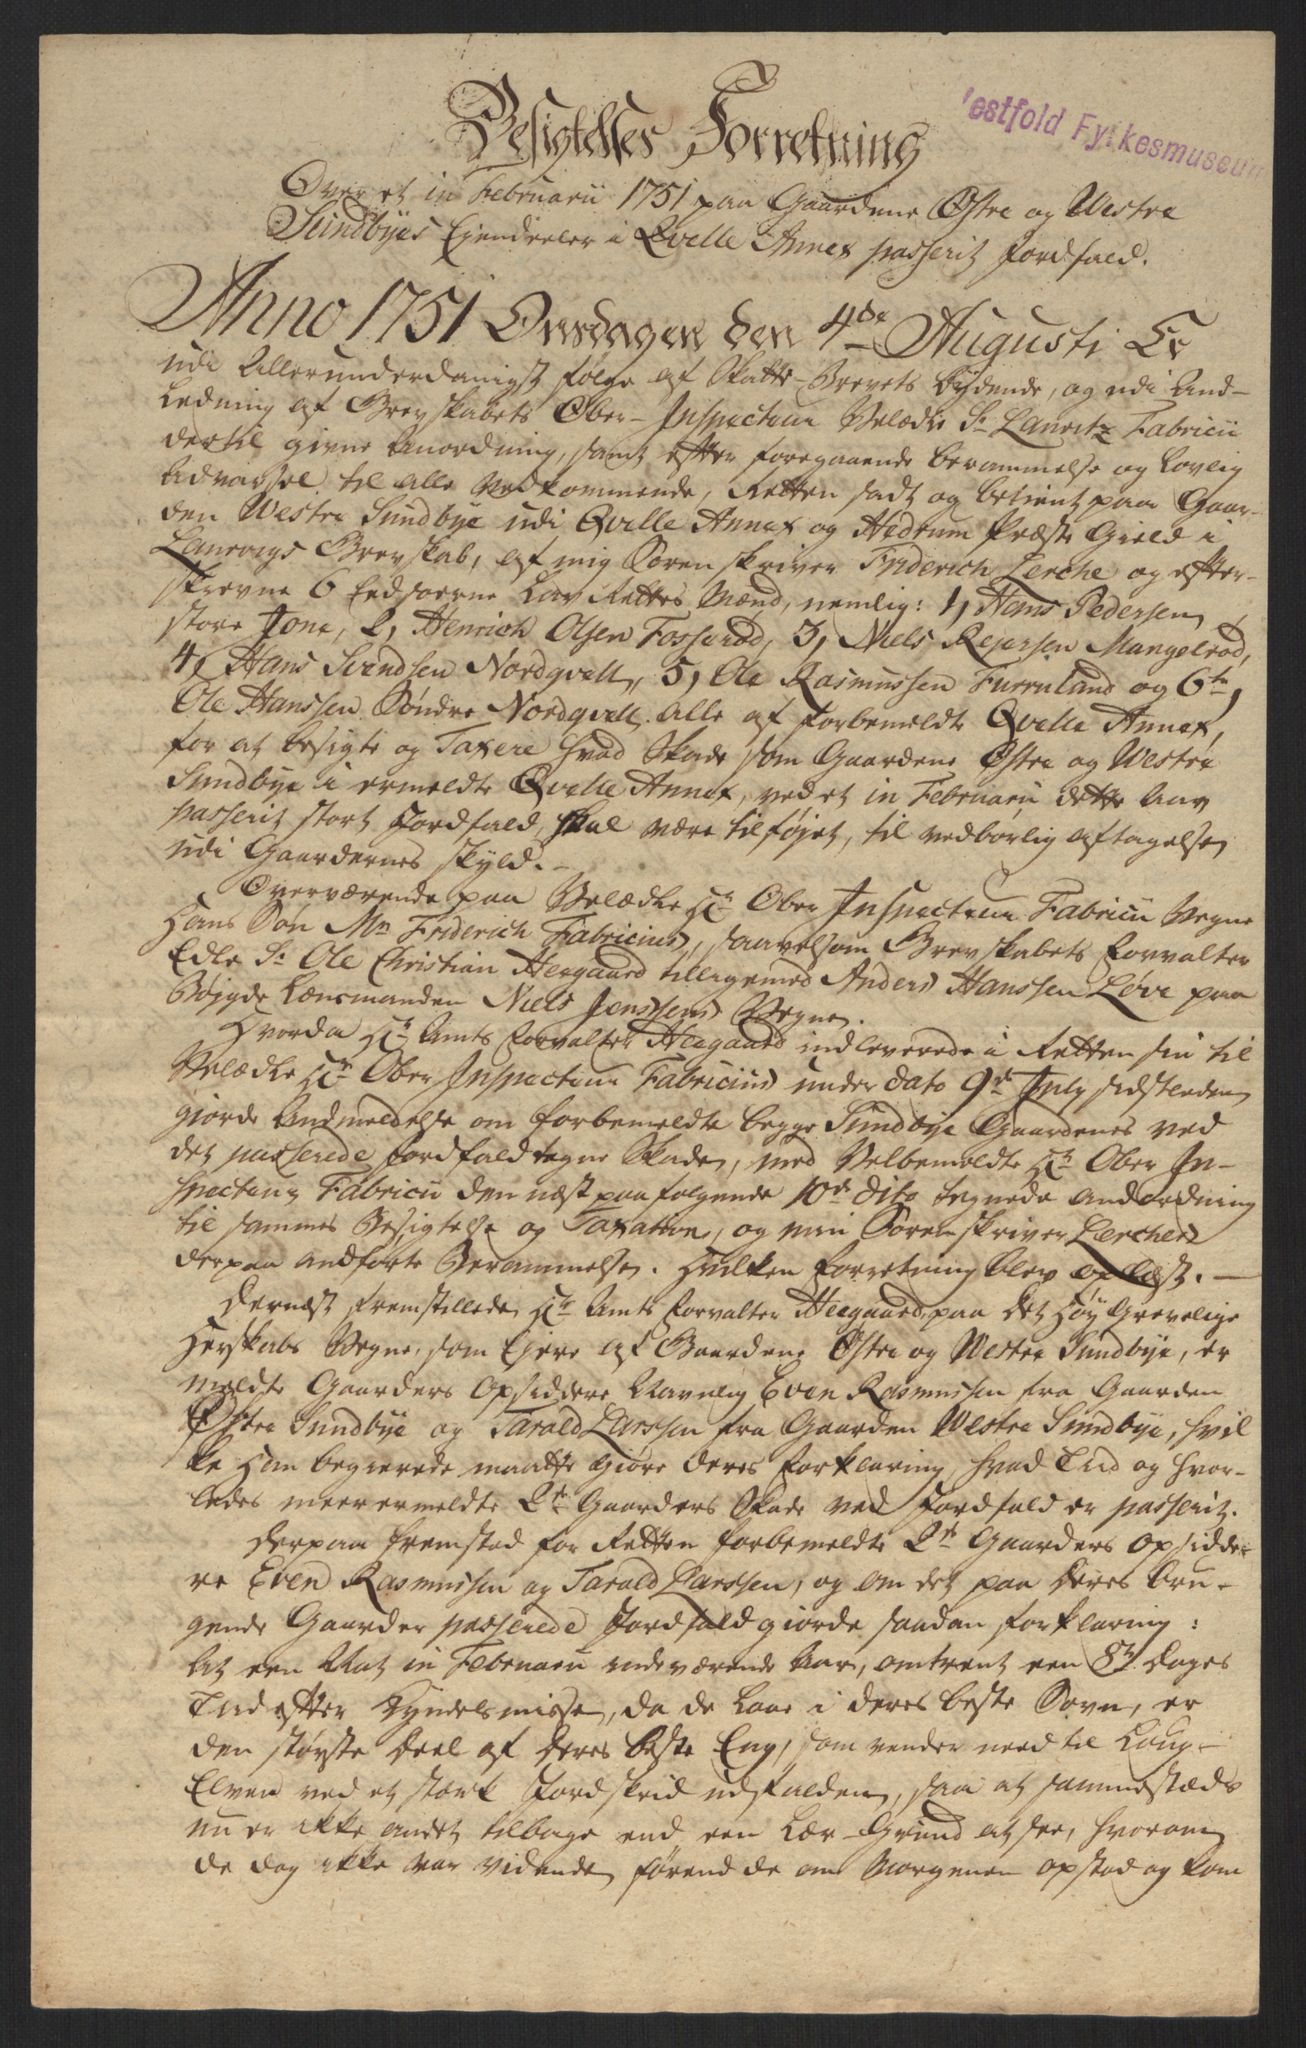 Vestfold Fylkesmuseum
Besigtelses Forretning
Over et in Februarii 1751 paa Gaardene Østre og Westre
Sundbyes Ejendeeler i Qvelle Annex passerit Jordfald.
Anno 1751 Onsdagen den 4de Augusti Er
udi Allerunderdanigst følge af Skatte-Brevets bydende, og udi And-
ledning af Grevskabets Ober-Inspecteur Velædle Sr Lauritz Fabricii
dertil givne Anordning, samt efter foregaaende berammelse og lovlig
Advarsel til alle Vedkommende, Retten sadt og betient paa Gaar-
den Westre Sundbye udi Qvelle Annex og Hedrum Præste Gield i
Laurvigs Grevskab, af mig Sorenskriver Friderich Lerche og efter-
skrevne 6 Eedsoerne Lav Rettes Mænd, nemlig: 1, Hans Pedersen
store Jone, 2, Henrich Olsen Fosserød, 3, Niels Rejersen Mangelrød,
4, Hans Svendsen Nordqvell, 5, Ole Rasmussen Furruland og 6te,
Ole Hanssen Søndre Nordqvell. Alle af forbemeldte Qvelle Annex,
for at besigte og Taxere hvad Skade som Gaardene Østre og Westre
Sundbye i ermeldte Qvelle Annex, ved et in Februarii dette Aar
passerit stort Jordfald, skal være tilføjet, til vedbørlig aftagelse
udi Gaardernes Skyld.
Overværende paa Velædle Hr Ober Inspecteur Fabricii Vegne
Hans Søn Mr Friderich Fabricius, saavelsom Grevskabets forvalter
Edle Sr Ole Christian Heegaard tilligemed Anders Hanssen Løve paa
Bøygde Lænsmanden Niels Jenssens Vegne.
Hvorda Hr Amts forvalter Heegaard indleverede i Retten sin til
Velædle Hr Ober Inspecteur Fabricius under dato 9de July sidstleden
giorde Andmeldelse om forbemeldte begge Sundbye Gaardenes ved
det passerede Jordfald tagne Skade, med Velbemeldte Hr Ober In-
specteur Fabricii den næst paafølgende 10de dito tegnede Andordning
til sammes Besigtelse og Taxation, og min Sorenskriver Lerches
derpaa andførte Berammelse. Hvilken forretning blev oplæst.
Dernæst fremstillede Hr Amts forvalter Heegaard paa det Høy Grevelige
Herskabs Vegne, som Ejere af Gaardene Østre og Westre Sundbye, er
meldte Gaarders Opsiddere Navnlig Even Rasmussen fra Gaarden
Østre Sundbye og Tarald Larssen fra Gaarden Westre Sundbye, hvil
ke Han begierede maatte giøre deres forklaring, hvad Tiid og hvor-
ledes meerermeldte 2de Gaarders Skade ved Jordfald er passerit.
Derpaa fremstod for Retten forbemeldte 2de Gaarders Opsidde-
re Even Rasmussen og Tarald Larssen, og om det paa deres bru-
gende Gaarder passerede Jordfald giorde saadan forklaring:
At een Nat in Februarii indeværende Aar, omtrent een 8te dages
Tiid efter Kyndelsmisse, da de laae i deres beste Søvn, er
den største deel af deres beste Eng, som vender need til Laug-
Elven ved et stork Jordskrid udfalden, saa at sammestæds
nu er ikke andet tilbage end een Leer-Grund at see, hvorom
de dog ikke var vidende, førend de om Morgenen opstod og kom